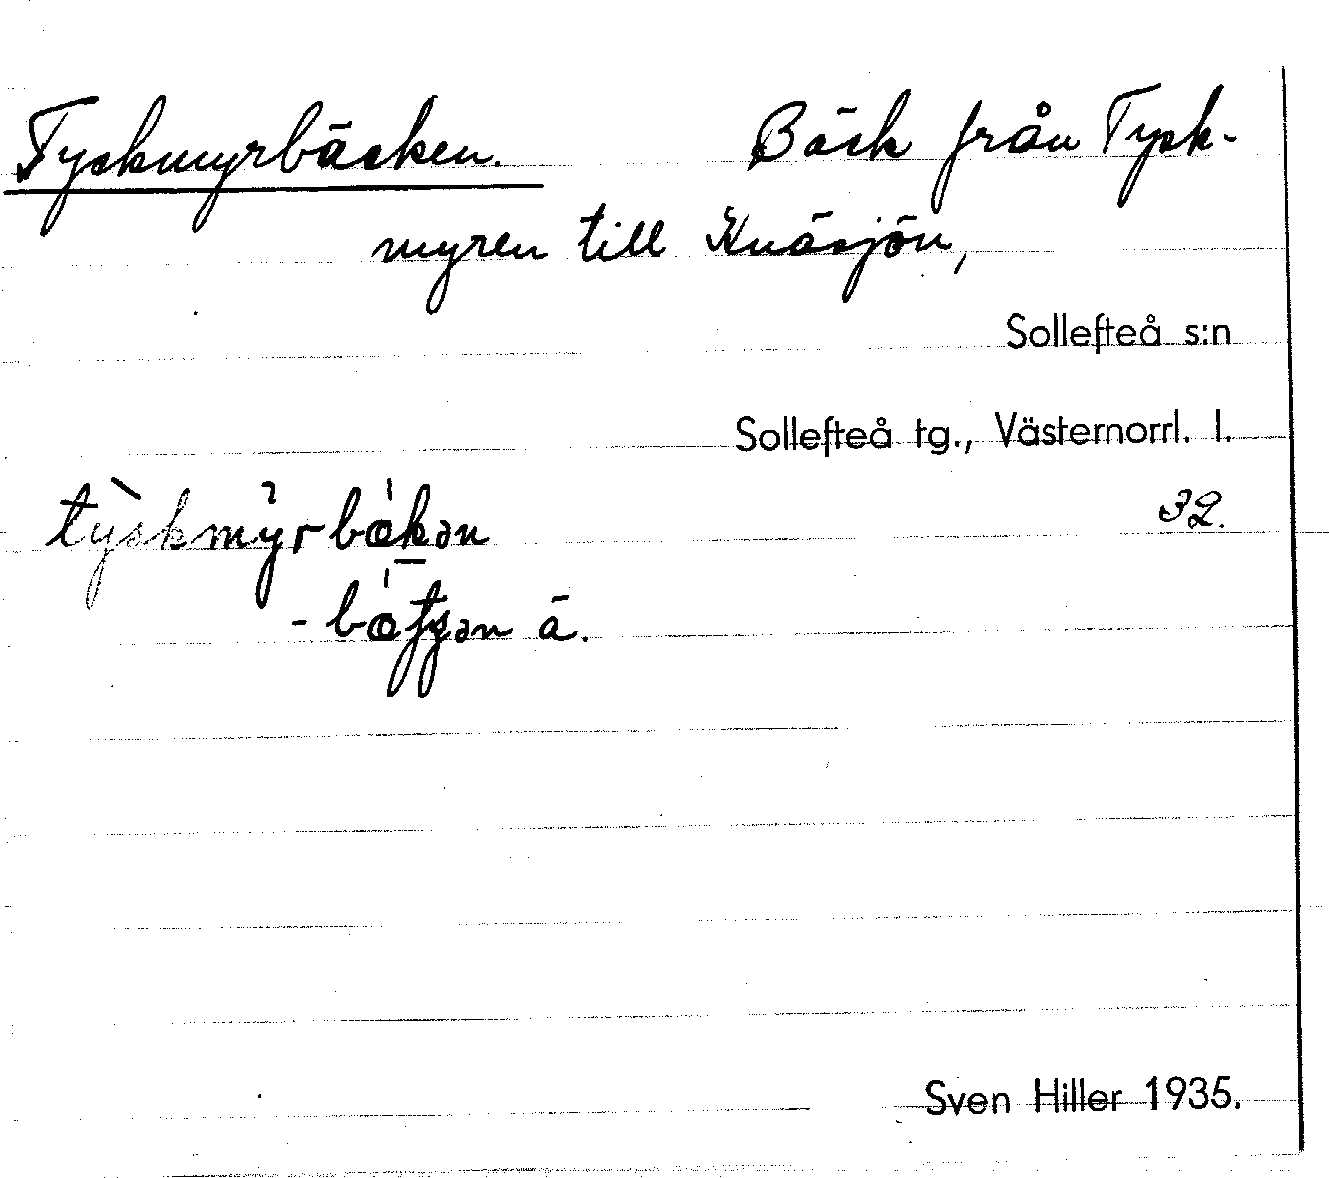 Tyskmyrbäcken. Bäck från Tysk-
myren till Knäsjön,
Sollefteå s:n
Sollefteå tg., Västernorrl. l.
32.
ty̍skmy̍rbækən
- bætʃən ä.
Sven Hiller 1935.